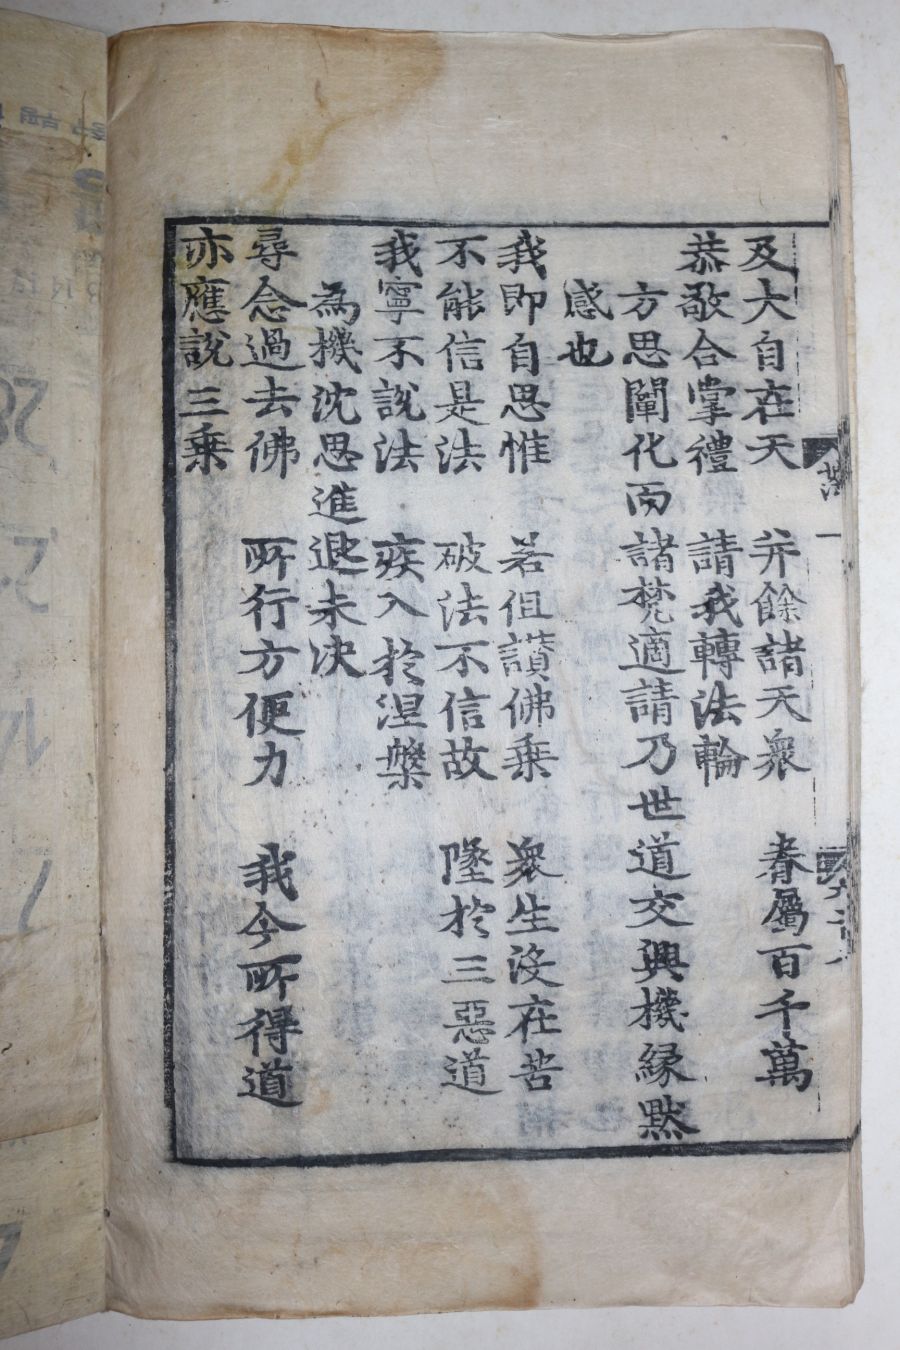 及大自在天 并餘諸天衆 眷屬百千萬
恭敬合掌禮 請我轉法輪
方思闡化而諸梵適請乃世道交興機緣默
感也
我即自思惟 若但讃佛乗 衆生没在苦
不能信是法 破法不信故 墜於三惡道
我寧不說法 疾入於涅槃
為機沈思進退未决
尋念過去佛 所行方便力 我今所得道
亦應說三乗
法一